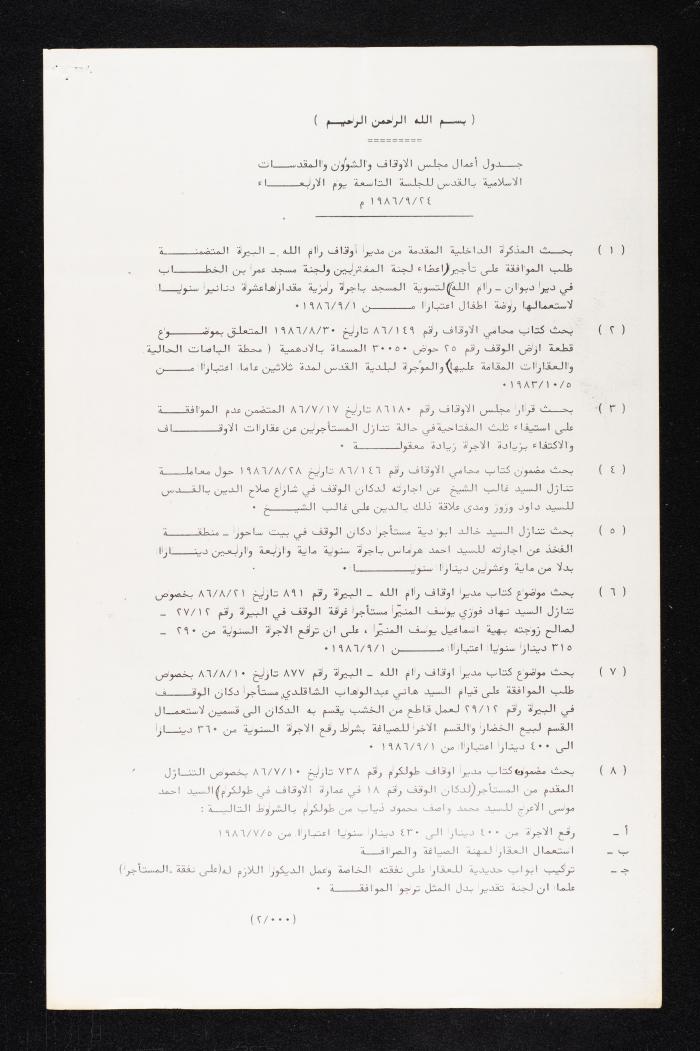 ( بسم الله الرحمن الرحيم )
=========
جدول أعمال مجلس الاوقاف والشؤون والمقدسات
الاسلامية بالقدس للجلسة التاسعة يوم الاربعاء
١٩٨٦/٩/٢٤ م
( ١ ) بحث المذكرة الداخلية المقدمة من مدير اوقاف رام الله - البيرة المتضمنة
طلب الموافقة على تأجير (اعضاء لجنة المغتربين ولجنة مسجد عمر بن الخطاب
في دير دبوان - رام الله) لتسوية المسجد باجرة رمزية مقدارها عشرة دنانير سنويا
لاستعمالها روضة اطفال اعتبارا من ١٩٨٦/٩/١٠
( ٢ ) بحث كتاب محامي الاوقاف رقم ٨٦/١٤٩ تاريخ ١٩٨٦/٨/٣٠ المتعلق بموضوع
قطعة ارض الوقف رقم ٢٥ حوض ٣٠٠٥٠ المسماة بالادهمية ( محطة الباصات الحالية
والعقارات المقامة عليها) والمؤجرة لبلدية القدس لمدة ثلاثين عاما اعتبارا من
١٩٨٣/١٠/٥٠
( ٣ ) بحث قرار مجلس الاوقاف رقم ٨٦١٨٠ تاريخ ٨٦/٧/١٧ المتضمن عدم الموافقة
على استيفاء ثلث المفتاحية في حالة تنازل المستأجرين عن عقارات الاوقاف
والاكتفاء بزيادة الاجرة زيادة معقولة ٠
( ٤ ) بحث مضمون كتاب محامي الاوقاف رقم ٨٦/١٤٦ تاريخ ١٩٨٦/٨/٢٨ حول معاملة
تنازل السيد غالب الشيخ عن اجارته لدكان الوقف في شارع صلاح الدين بالقدس
للسيد داود وزوز ومدى علاقة ذلك بالدين على غالب الشيخ ٠
( ٥ ) بحث تنازل السيد خالد ابو دية مستأجر دكان الوقف في بيت ساحور - منطقة
الفخذ عن اجارته للسيد احمد هرماس باجرة سنوية ماية واربعة واربعين دينارا
بدلا من ماية وعشرين دينارا سنويا ٠
( ٦ ) بحث موضوع كتاب مدير اوقاف رام الله - البيرة رقم ٨٩١ تاريخ ٨٦/٨/٢١ بخصوص
تنازل السيد نهاد فوزي يوسف المنيّر مستأجر غرفة الوقف في البيرة رقم ٢٧/١٢ -
لصالح زوجته بهية اسماعيل يوسف المنيّر ، على ان ترفع الاجرة السنوية من ٢٩٠ -
٣١٥ دينارا سنويا اعتبارا من ١٩٨٦/٩/١٠
( ٧ ) بحث موضوع كتاب مدير اوقاف رام الله - البيرة رقم ٨٧٧ تاريخ ٨٦/٨/١٠ بخصوص
طلب الموافقة على قيام السيد هاني عبدالوهاب الشاقلدي مستأجر دكان الوقف
في البيرة رقم ٢٩/١٢ لعمل قاطع من الخشب يقسم به الدكان الى قسمين لاستعمال
القسم لبيع الخضار والقسم الاخر للصياغة بشرط رفع الاجرة السنوية من ٣٦٠ دينارا
الى ٤٠٠ دينار اعتبارا من ١٩٨٦/٩/١ ٠
( ٨ ) بحث مضمون كتاب مدير اوقاف طولكرم رقم ٧٣٨ تاريخ ٨٦/٧/١٠ بخصوص التنازل
المقدم من المستأجر (لدكان الوقف رقم ١٨ في عمارة الاوقاف في طولكرم) السيد احمد
موسى الاعرج للسيد محمد واصف محمود ذياب من طولكرم بالشروط التالية :
أ - رفع الاجرة من ٤٠٠ دينار الى ٤٣٠ دينار سنويا اعتبارا من ١٩٨٦/٧/٥
ب - استعمال العقار لمهنة الصياغة والصرافة
ج - تركيب ابواب حديدية للعقار على نفقته الخاصة وعمل الديكور اللازم له (على نفقة المستأجر)
علما ان لجنة تقدير بدل المثل ترجو الموافقة ٠
(٢/٠٠٠)